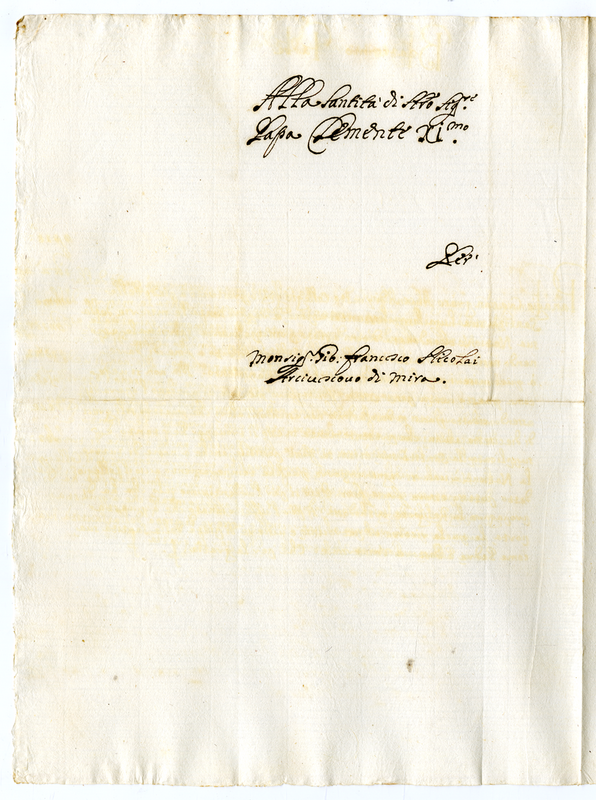 Alla Santità di Nrõ Sigre
Papa Clemente XImo.
Per
Monsigr. Gio: Francesco Nicolai
Arciuescouo di Mira.